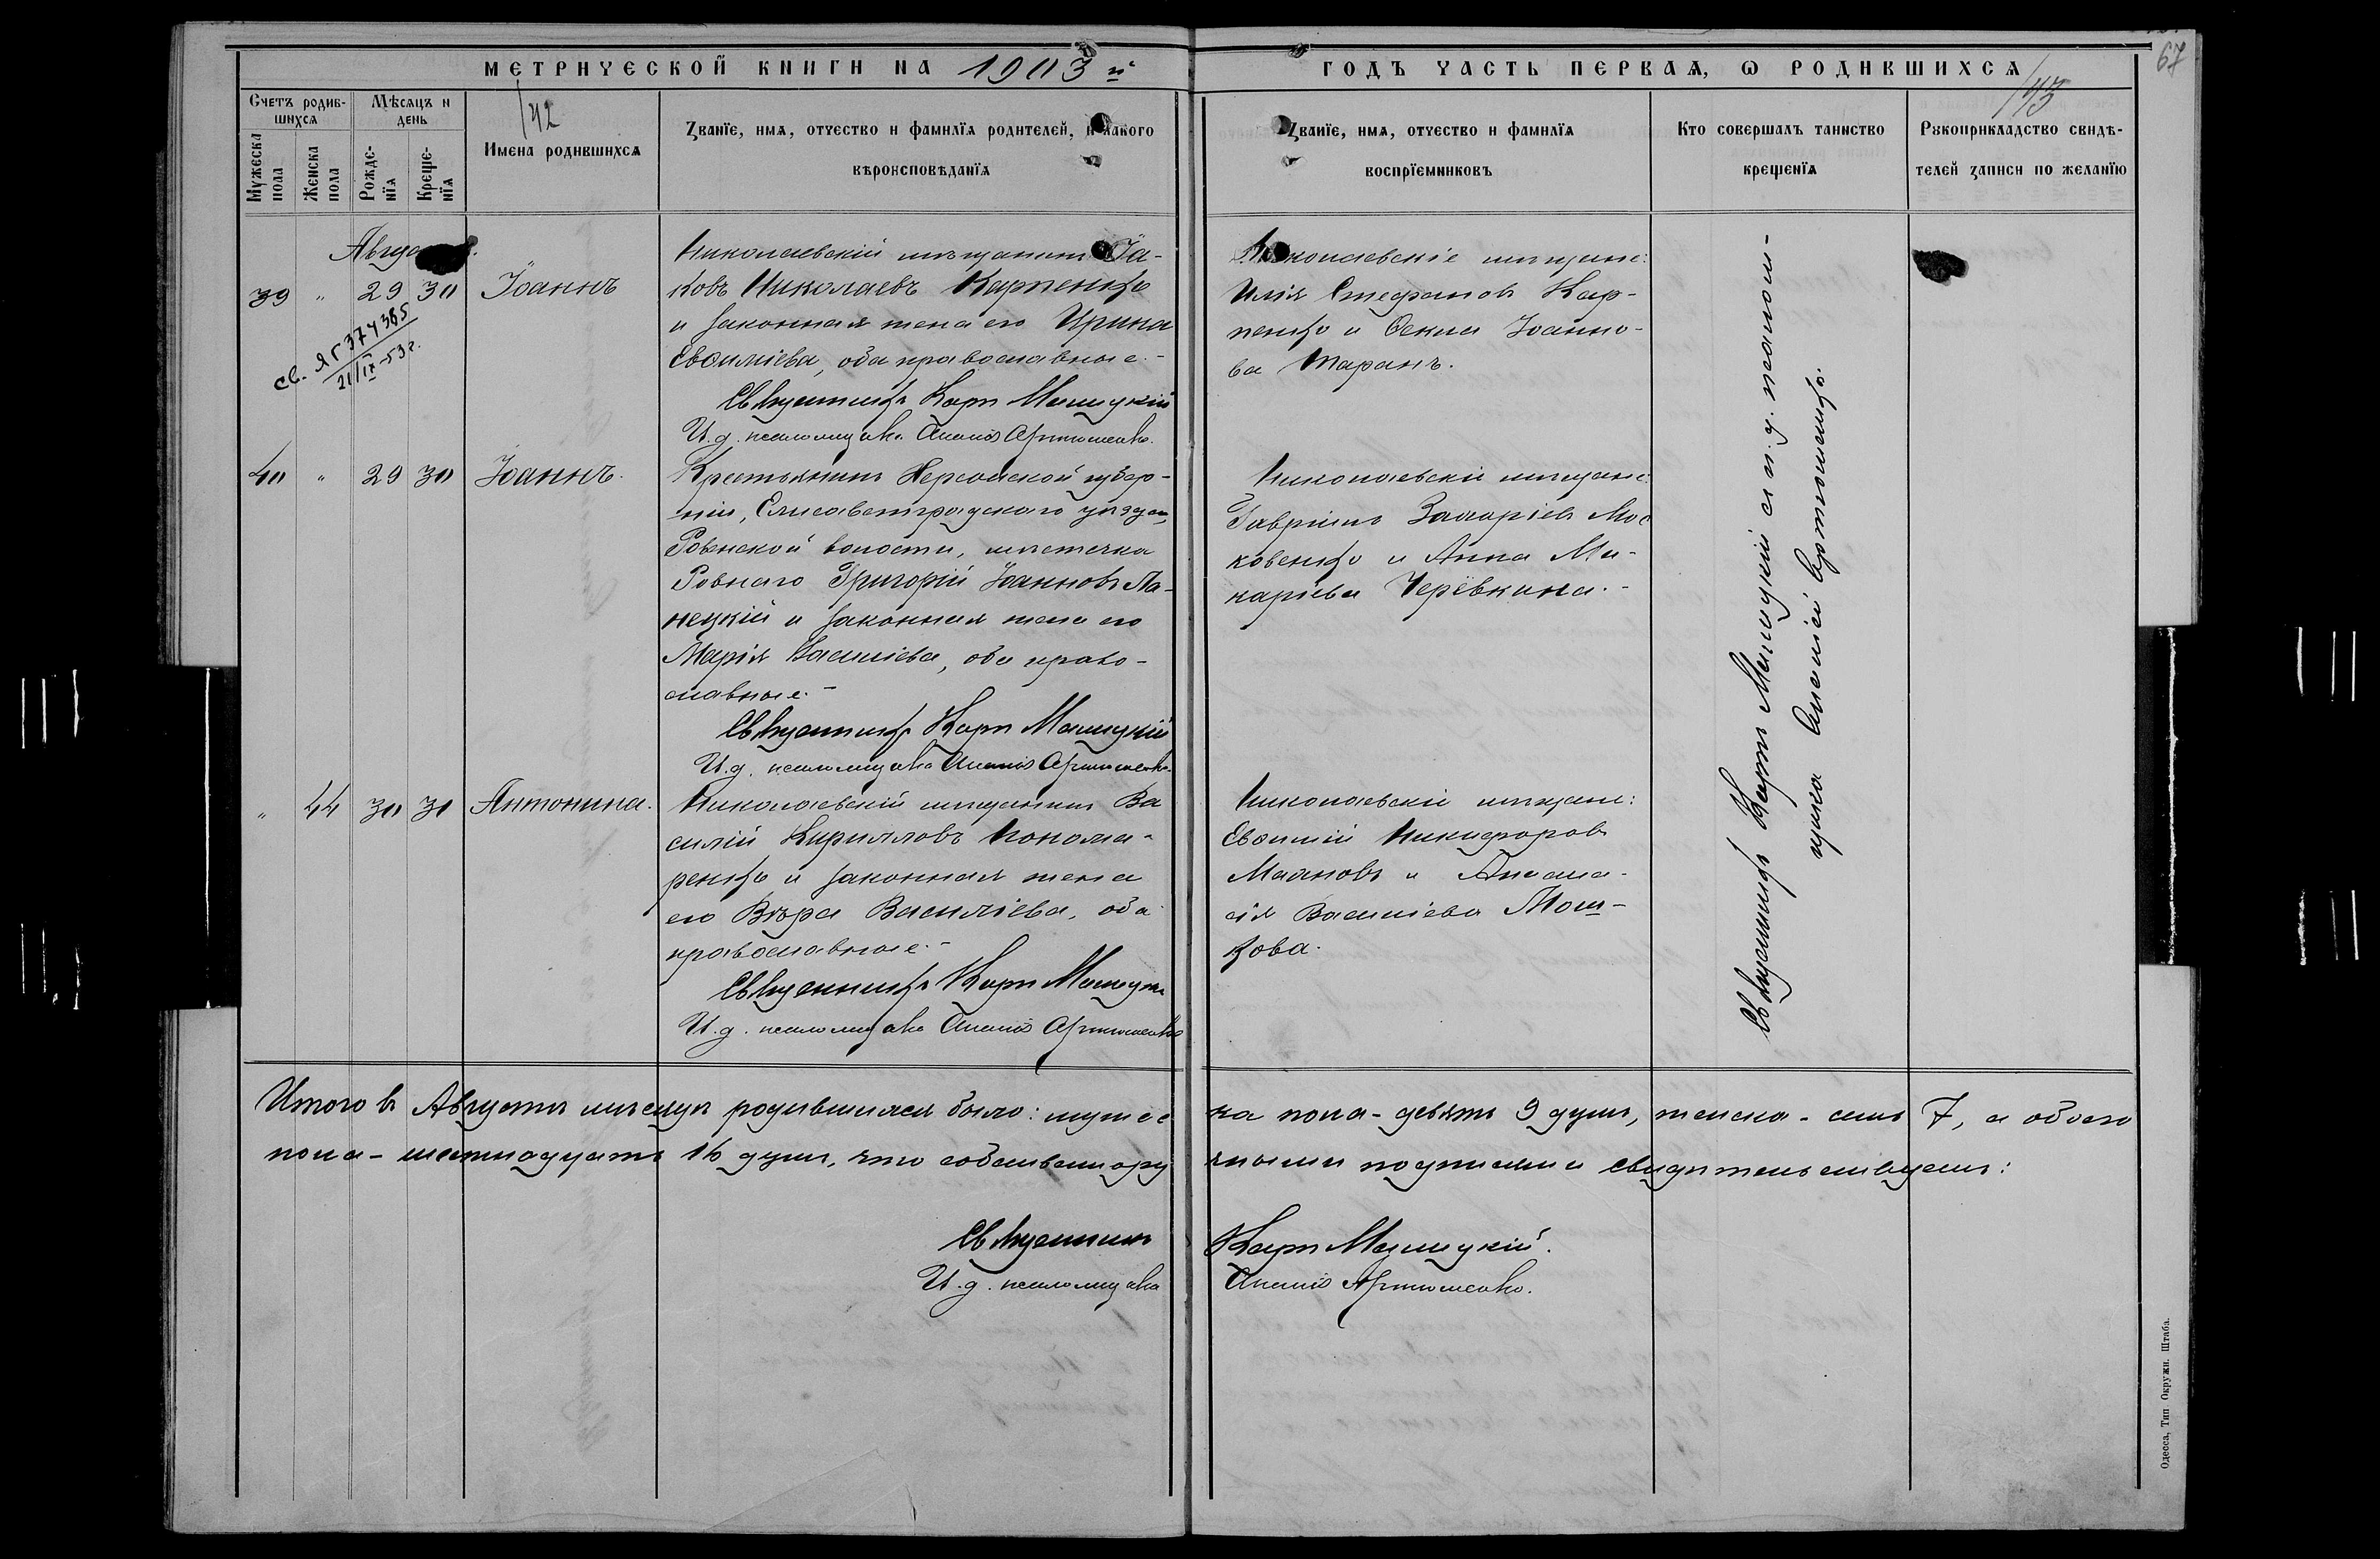 МЕТРИЧЕСКОЙ КНИГИ НА 1903 й
ГОДЪ ЧАСТЬ ПЕРВАЯ, Ѡ РОДИВШИХСЯ
67
142
143
Счетъ родив-
шихся
Мѣсяцъ и
день
Мужеска пола
Женска пола
Рожде-
нія
Креще-
нія
Имена родившихся
Званіе, имя, отчество и фамилія родителей, и какого
вѣроисповѣданія
Званіе, имя, отчество и фамилія
воспріемниковъ
Кто совершалъ таинство
крещенія
Рукоприкладство свидѣ-
телей записи по желанію
Авгус
39 " 29 30 Іоаннъ
св. ЯГ 374385
21/IX-53 г.
Николаевскій мѣщанинъ Іа-
ковъ Николаевъ Карпенко
и законная жена его Ирина
Евѳиміева, оба православные.-
Священникъ Карп Машуцкій
И.д. псаломщика Ананій Артюшенко.
Николаевскіе мѣщане:
Илія Стефановъ Кар-
пенко и Ѳекла Іоанно-
ва Таранъ.
40 " 29 30 Іоаннъ.
Крестьянинъ Херсонской губер-
ніи, Елисаветградскаго уѣзда,
Ровенской волости, мѣстечка
Ровнаго Григорій Іоанновъ Ла-
нецкій и законная жена его
Марія Василіева, оба право-
славные.-
Священникъ Карп Машуцкій
И.д. псаломщика Ананій Артюшенко.
Николаевскіе мѣщане:
Гавріилъ Захаріевъ Мос
ковенко и Анна Ма-
каріева Черёвкина.-
" 44 30 30 Антонина.
Николаевскій мѣщанинъ Ва
силій Кирилловъ Понома-
ренко и законная жена
его Вѣра Василіева, оба
православные.-
Священникъ Карп Машуцкій
И.д. псаломщика Ананій Артюшенко
Николаевскіе мѣщане:
Евѳимій Никифоровъ
Маановъ и Анаста-
сія Василіева Мош-
кова.
Священникъ Карпъ Машуцкій и и.д. псалом-
щика Ананій Артюшенко.
Итого въ Августѣ мѣсяцѣ родившихся было: мужес
ка пола - девять 9 душъ, женска - семь 7, а обоего
пола - шестнадцать 16 душъ, что собственнору
чными подписями свидѣтельствуемъ:
Священникъ Карп Машуцкій.
И.д. псаломщика Ананій Артюшенко.
Одесса, Тип Окружн. Штаба.